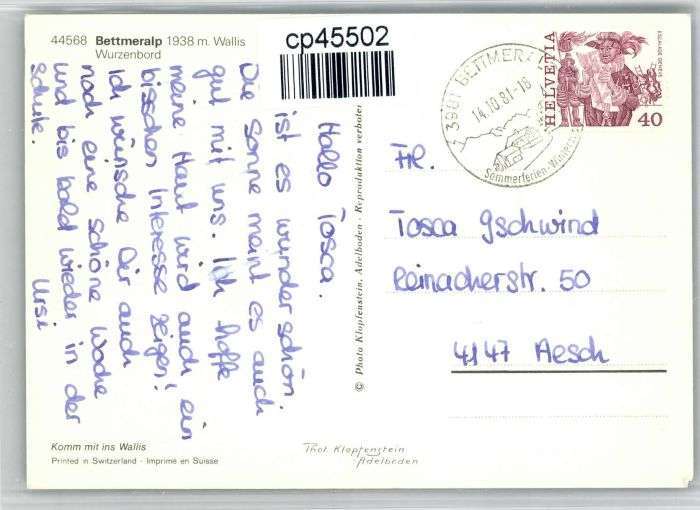 44568 Bettmeralp 1938 m. Wallis
Wurzenbord
cp45502
Hallo Tosca.
ist es wunderschön.
Die Sonne meint es auch
gut mit uns. Ich hoffe
meine Haut wird auch ein
bisschen Interesse zeigen!
Ich wünsche Dir auch
noch eine schöne Woche
und bis bald wieder in der
Schule.
Ursi
© Photo Klopfenstein, Adelboden - Reproduktion verboten
3901 BETTMERAL
14.10.81-18
Sommerferien-Winter
HELVETIA
40
Fr.
Tosca Gschwind
Reinacherstr. 50
4147 Aesch
Komm mit ins Wallis
Printed in Switzerland - Imprimé en Suisse
Phot. Klopfenstein
Adelboden